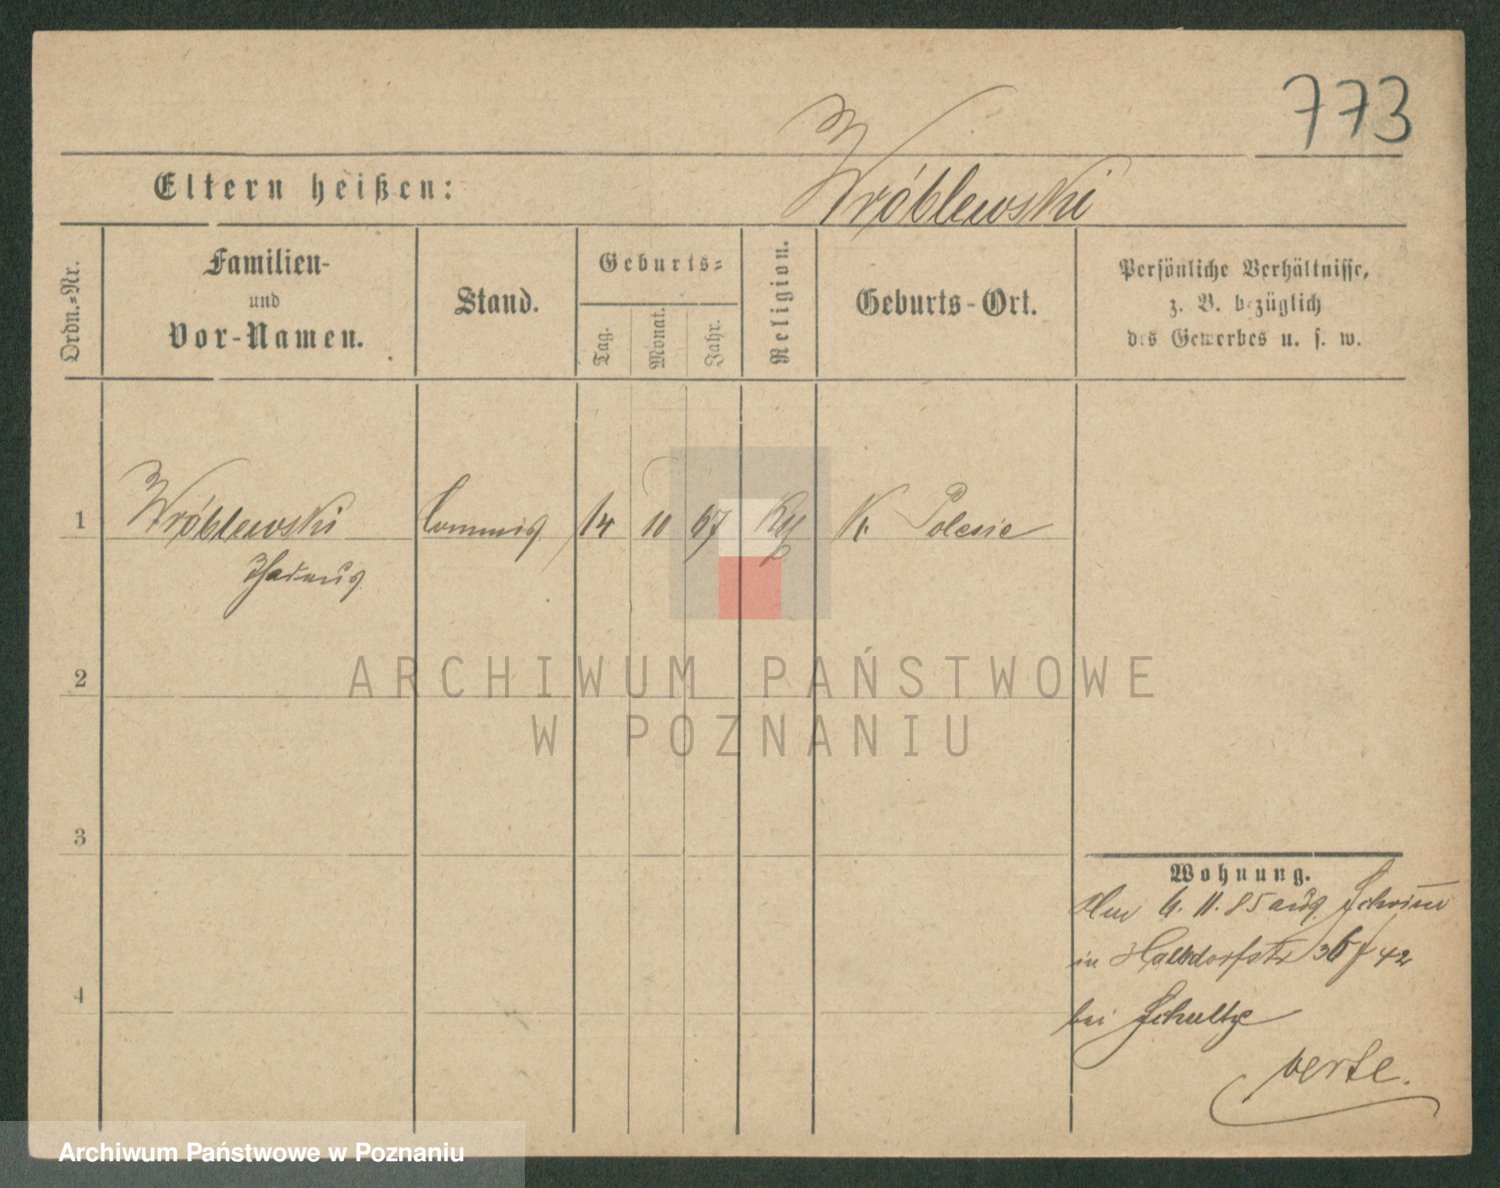 773
Wróblewski
Eltern heißen:
Ordn.-Nr.
Familien-
und
Vor-Namen.
Stand.
Geburts-
Tag.
Monat.
Jahr.
Religion.
Geburts-Ort.
Persönliche Verhältnisse,
z. B. bezüglich
des Gewerbes u. s. w.
1 Wróblewski Commis 14 10 67 K. Polesie
Thadeus
2
3
4
Wohnung.
11. 85 aus Schrimm
in Halbdorfstr 36/42
bei Schultze
verte.
ARCHIWUM PAŃSTWOWE
W POZNANIU
Archiwum Państwowe w Poznaniu